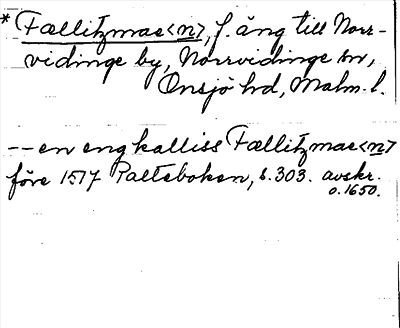 * Fællitzmae<n>, f. äng till Norr-
vidinge by, Norrvidinge sn,
Onsjö hd, Malm. l.
-- en eng kalliss Fællitzmae<n>
före 1517 Palteboken, s. 303. avskr.
o. 1650.